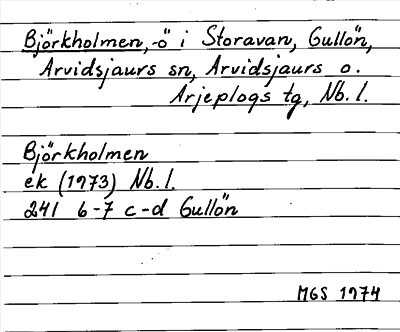 Björkholmen,-ö i Storavan, Gullön,
Arvidsjaurs sn, Arvidsjaurs o.
Arjeplogs tg, Nb. l.
Björkholmen
ek (1973) Nb. l.
241 6-7 c-d Gullön
MGS 1974